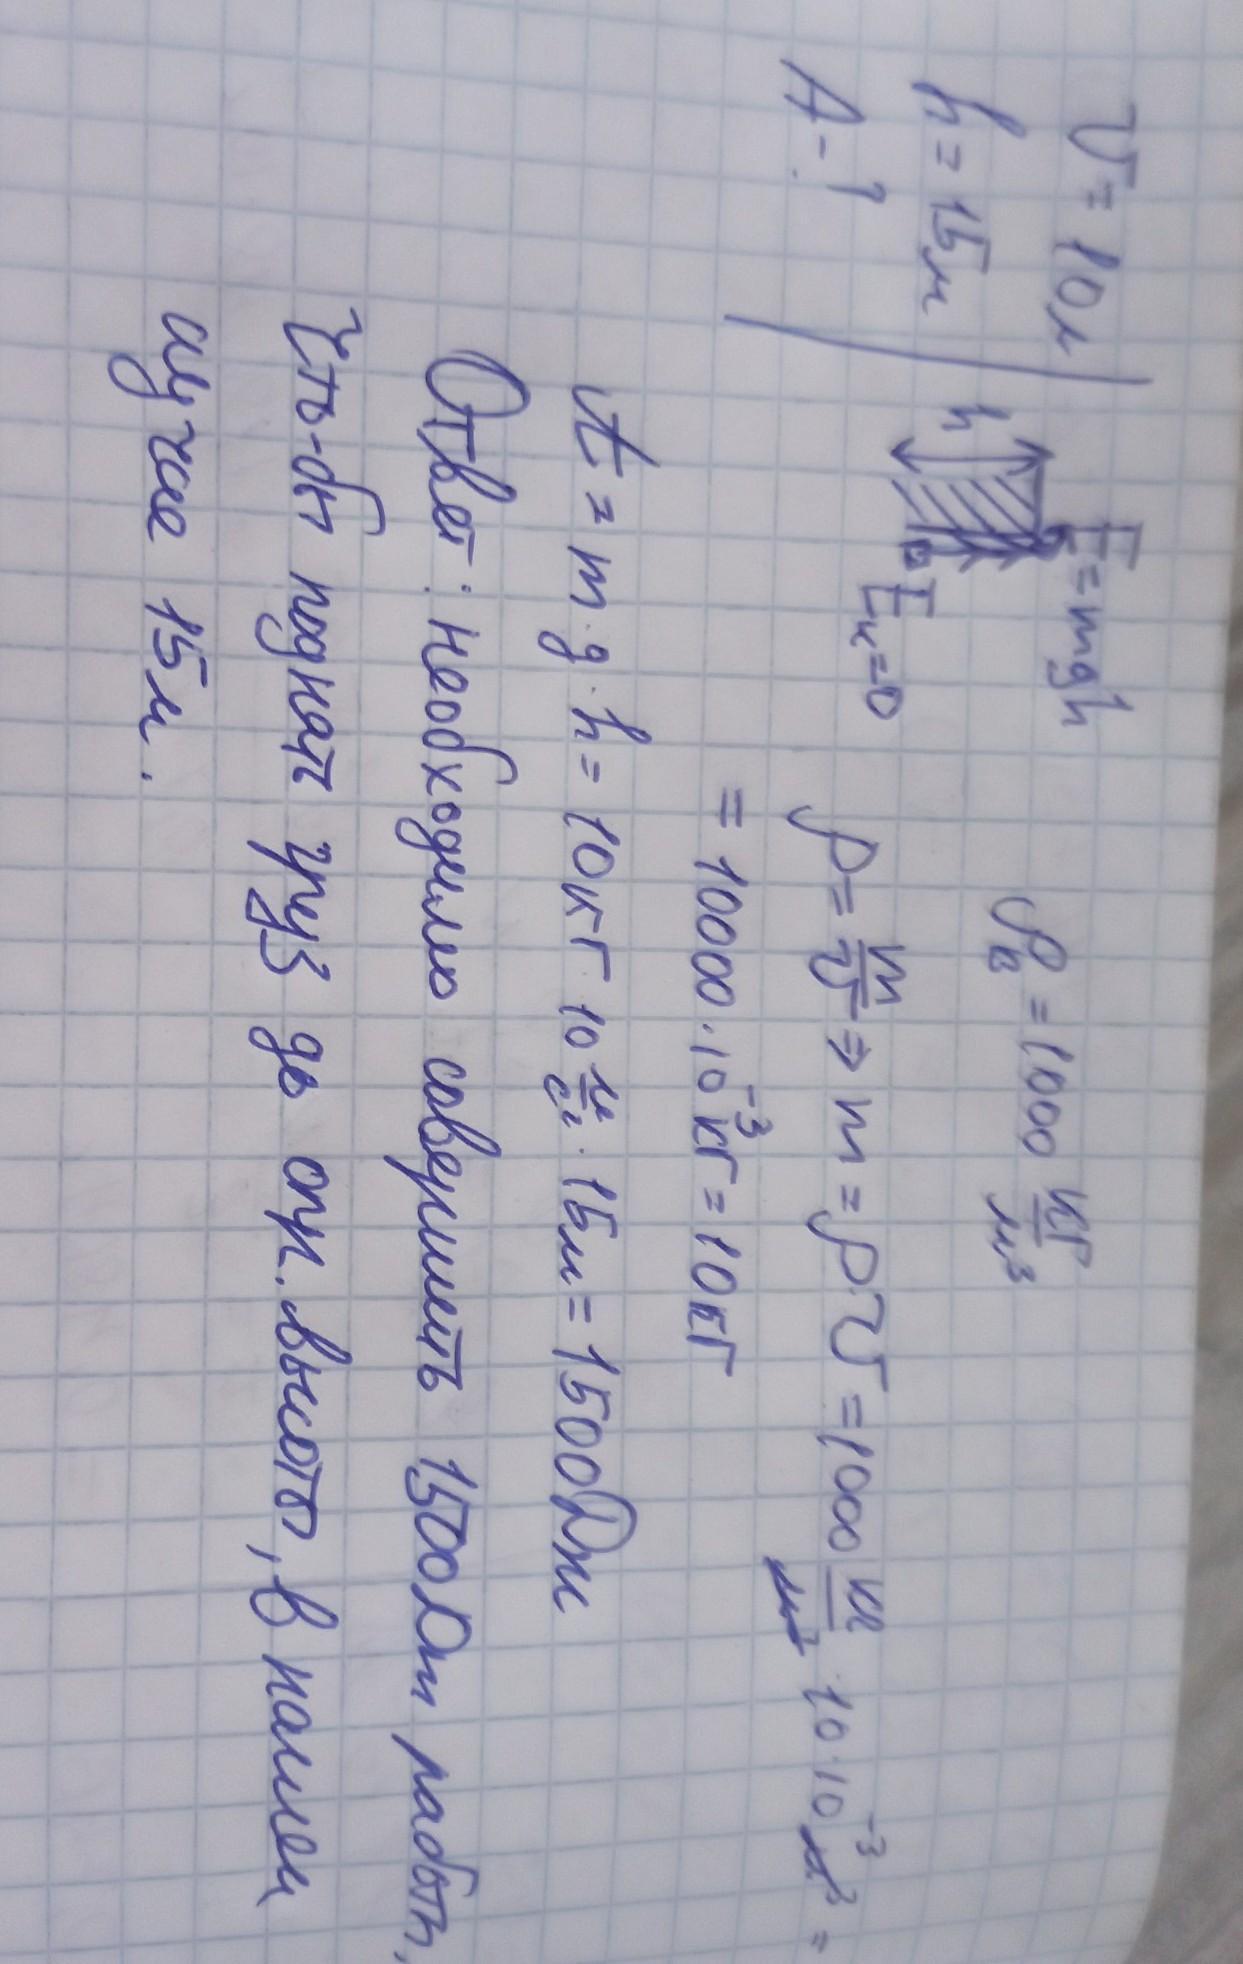 V = 10л
h = 15м
A - ?
h
E = mgh
Eк = 0
ρв = 1000 кг/м³
ρ = m/V ⇒ m = ρV = 1000 кг/м³ · 10 · 10⁻³ м³ =
= 10000 · 10⁻³ кг = 10кг
A = m · g · h = 10кг · 10 м/с² · 15м = 1500Дж
Ответ: необходимо совершить 1500Дж работы,
что-бы поднять груз до опр. высоты, в нашем
случае 15м.